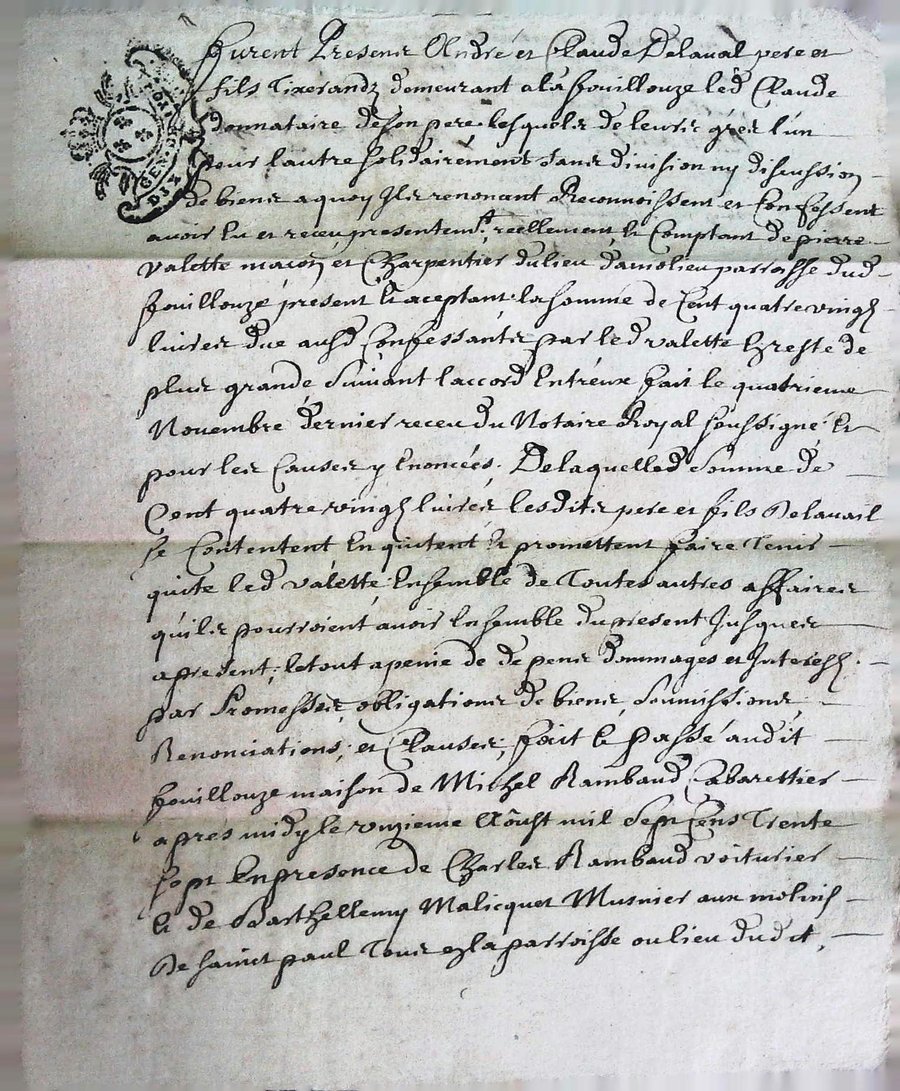 furent Presens André et Claude Delaval pere et
fils Tixerandz demeurant a la fouillouze led Claude
donnataire de son pere lesquels de leurs grés l'un
pour l'autre solidairement sans division ny discussion
de biens a quoy Ils renoncant Reconnoissent et Confessent
avoir Eu et receu presentemt reellement & Comptant de pierre
Valette macon et Charpentier du lieu damolieu parroisse dud
fouillouze present & aceptant la somme de Cent quatre vingt
livres due ausd Confessants par led valette & reste de
plus grande Suivant laccord Entreux fait le quatrieme
Novembre dernier receu du Notaire Royal soussigné Et
pour les Causes y Enoncées. De laquelled Somme de
Cent quatre vingt livres lesdits pere et fils Delavail
se Contentent En quitent & promettent faire Tenir
quite led valette Ensemble de Toutes autres affaires
quils pourroient avoir Ensemble du present Jusques
apresent; le tout a peine de depens dommages et Interests.
par Promesses, obligations de biens, Soumissions,
Renonciations, et Clauses, fait & passé audit
fouillouze maison de Michel Rambaud Cabarettier
apres midy le unzieme Aoust mil Sept Cens Trente
sept En presence de Charles Rambaud voiturier
& de Barthellemy Malicquet Musnier aux molins
de sainct paul Tous ez la parroisse ou lieu dudit,
GEN DE
DIX